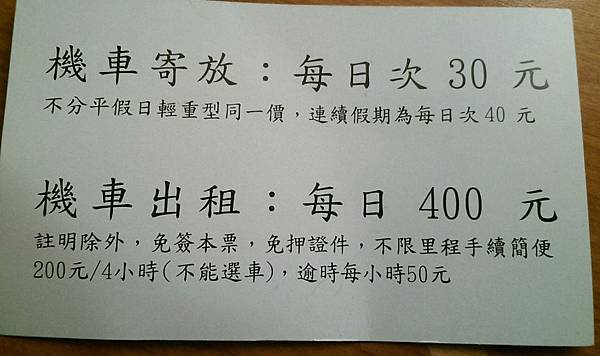 機車寄放：每日次 30 元
不分平假日輕重型同一價，連續假期為每日次 40 元
機車出租：每日 400 元
註明除外，免簽本票，免押證件，不限里程手續簡便
200元/4小時(不能選車)，逾時每小時50元